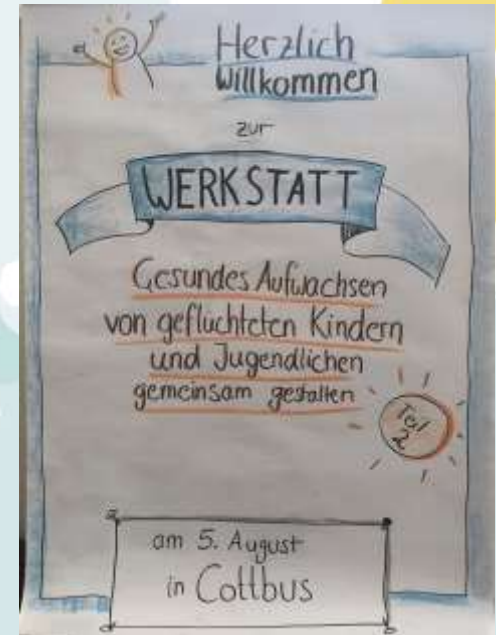 Herzlich
Willkommen
zur
WERKSTATT
Gesundes Aufwachsen
von geflüchteten Kindern
und Jugendlichen
gemeinsam gestalten
Teil
2
am 5. August
in Cottbus